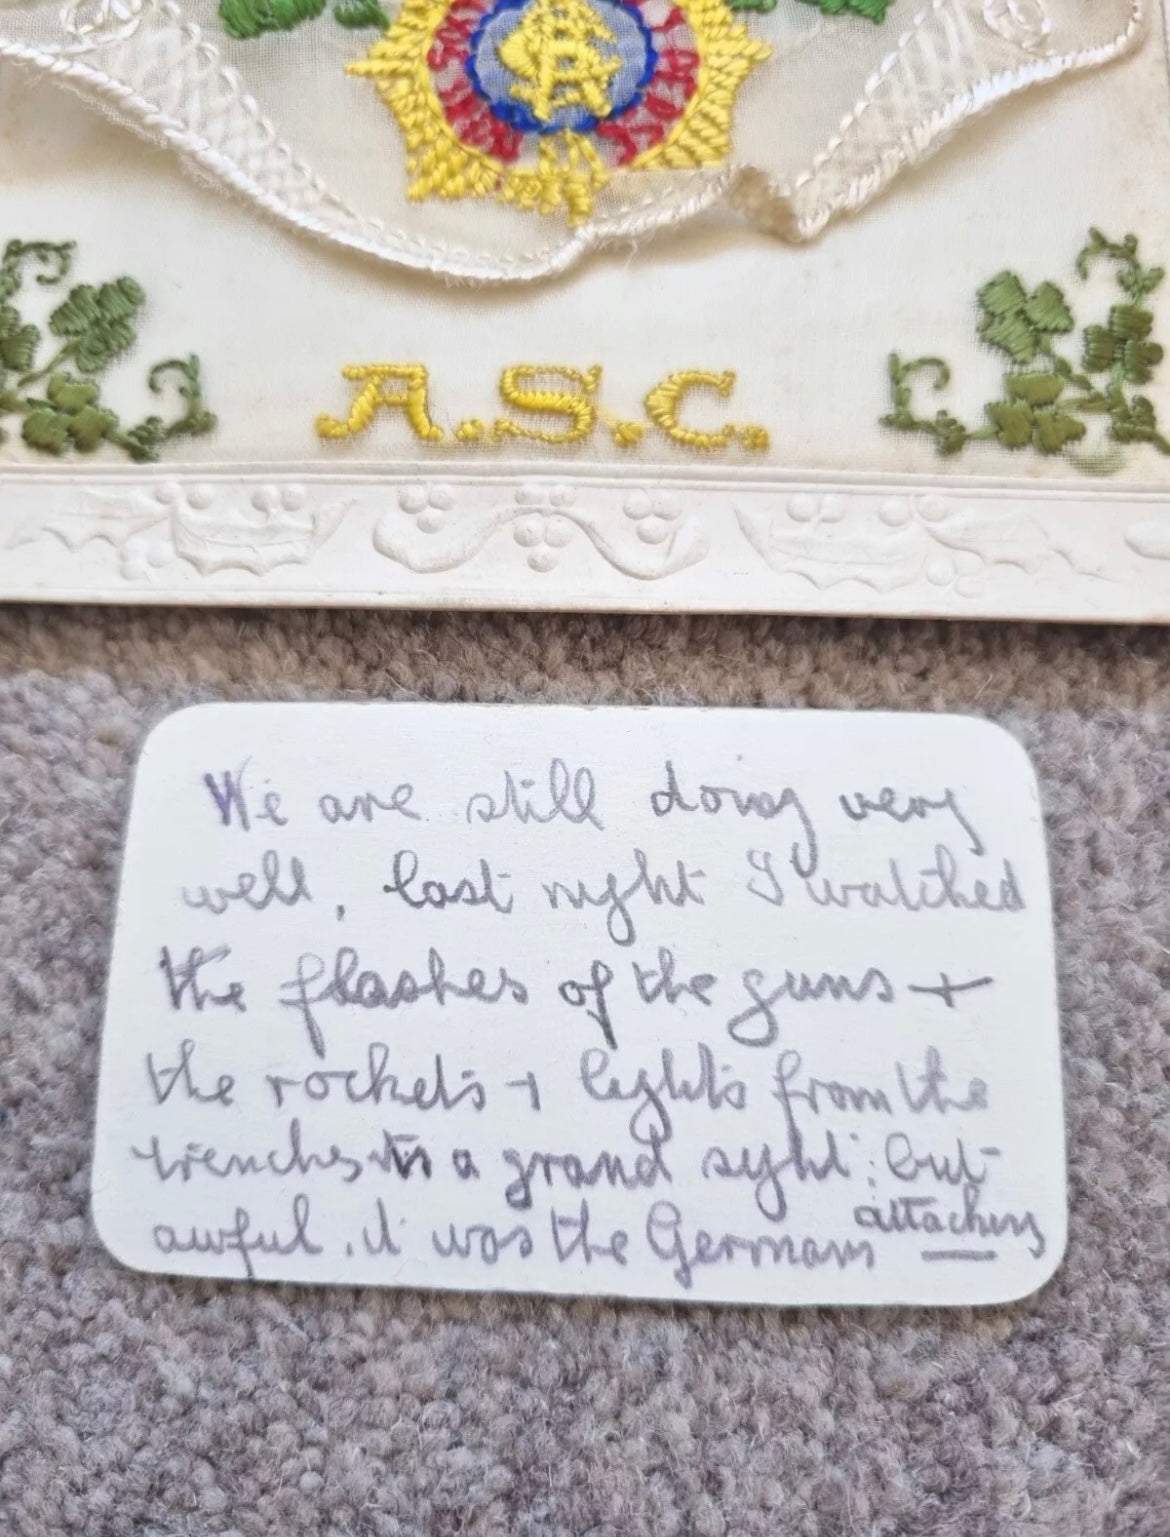 A.S.C.
We are still doing very
well, last night I watched
the flashes of the guns +
the rockets + lights from the
trenches its a grand sight: but
awful, it was the Germans attacking